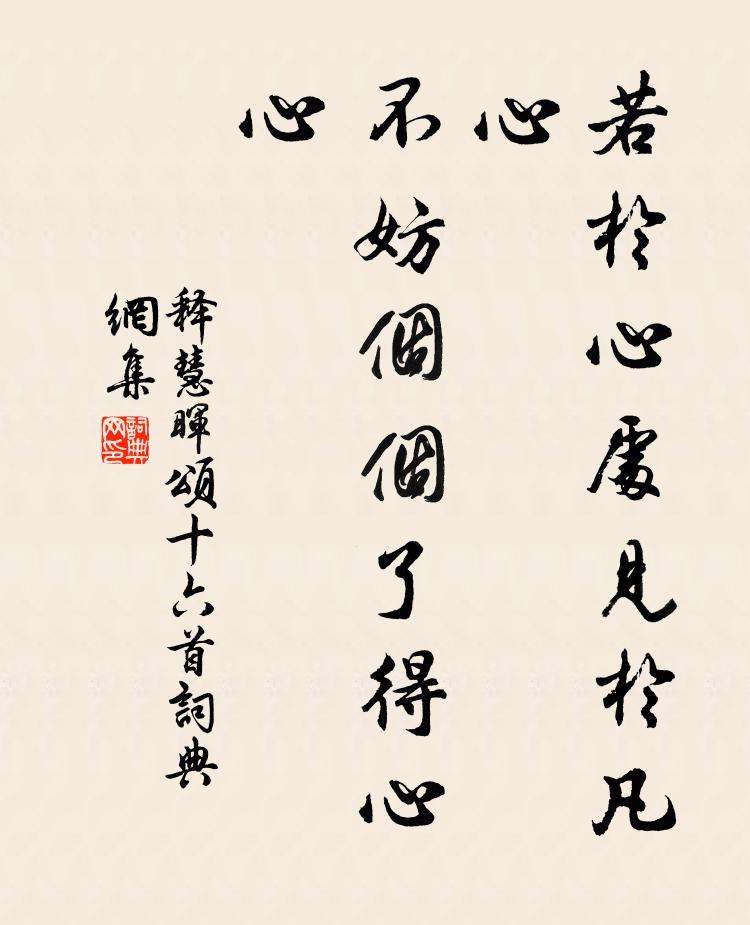 若於心處見於凡
心
不妨個個了得心
心
释慧暉頌十六首詞典
網集
詞典
网印